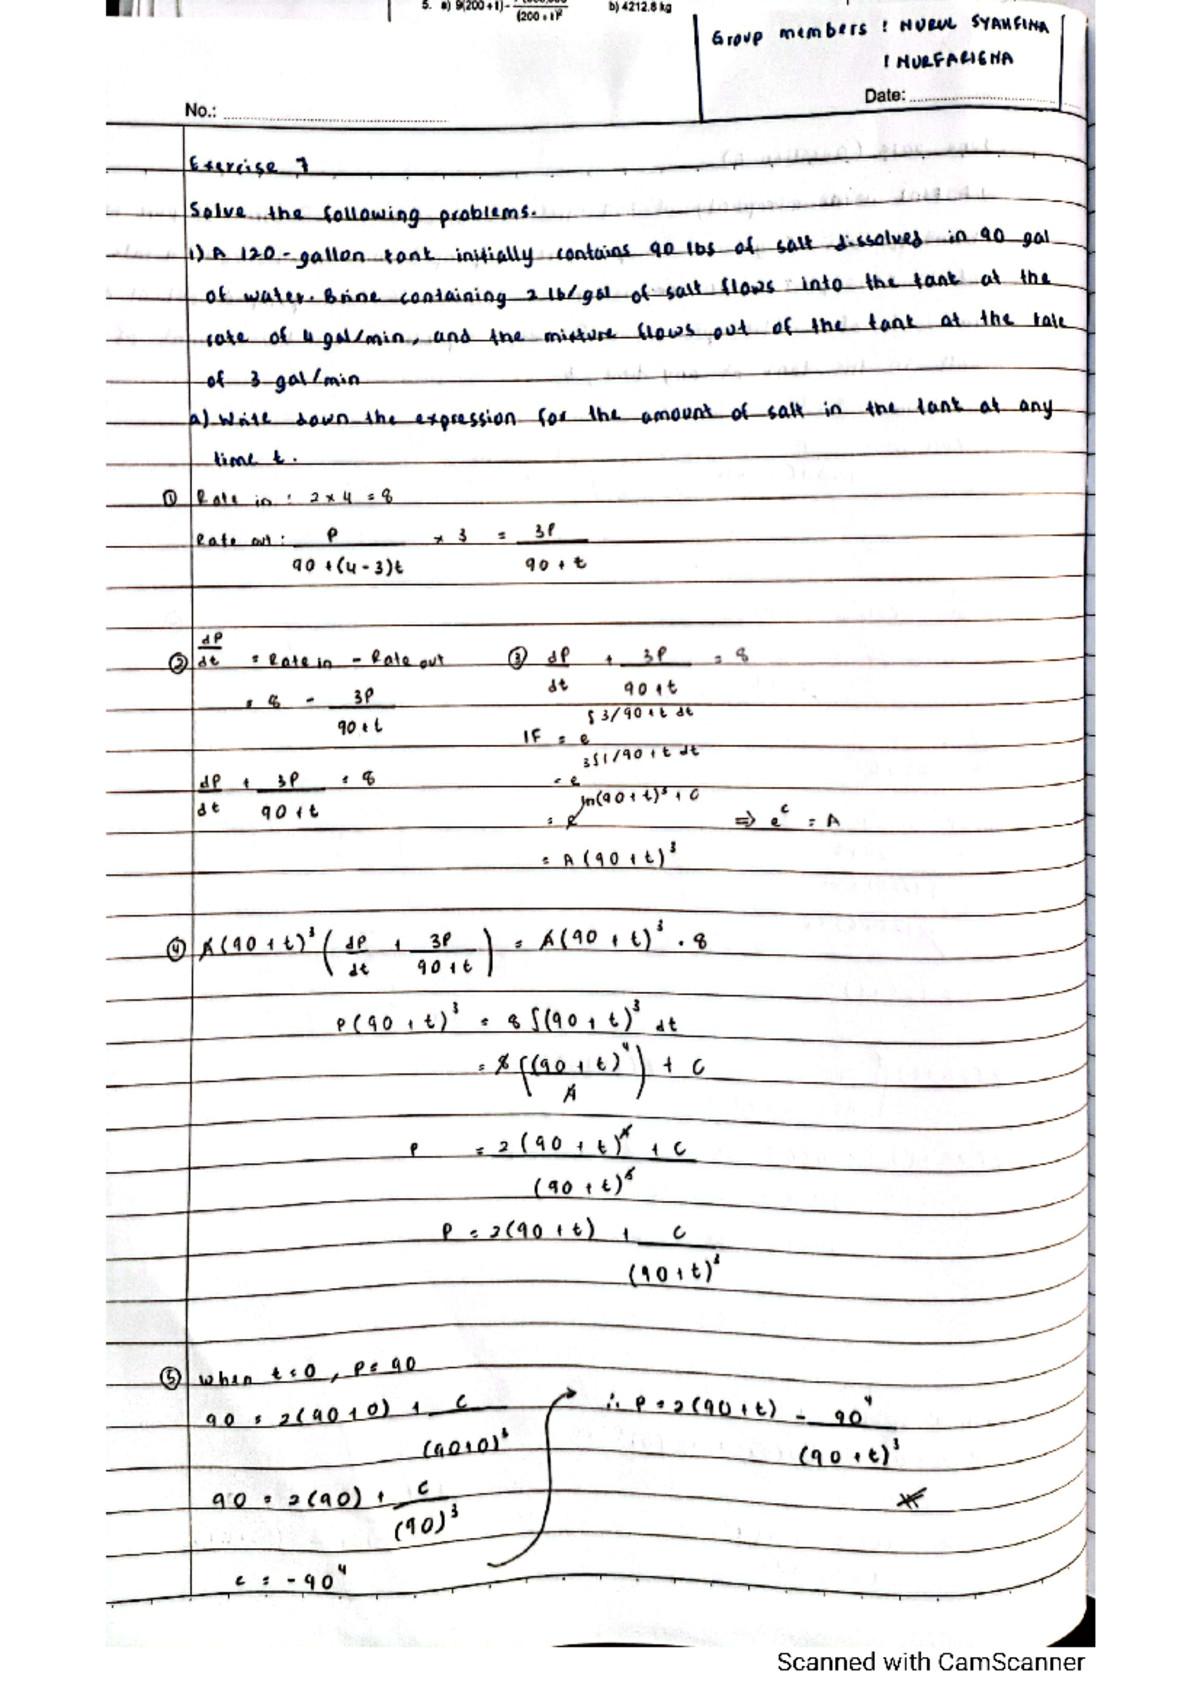 5. a) 9(200+t) - (200+t)² b) 4212.8 kg
Group members : NURUL SYAHFINA
: NURFARISHA
Date:
No.:
Exercise 7
Solve the following problems.
1) A 120-gallon tank initially contains 90 lbs of salt dissolved in 90 gal
of water. Brine containing 2 lb/gal of salt flows into the tank at the
rate of 4 gal/min, and the mixture flows out of the tank at the rate
of 3 gal/min
a) Write down the expression for the amount of salt in the tank at any
time t.
① Rate in : 2 x 4 = 8
Rate out : P / (90 + (4-3)t) x 3 = 3P / (90 + t)
② dP/dt = Rate in - Rate out
= 8 - 3P / (90 + t)
dP/dt + 3P / (90 + t) = 8
③ dP/dt + 3P / (90 + t) = 8
IF = e^∫3/90+t dt
= e^3∫1/90+t dt
= e^ln(90+t)³+c ⇒ e^c = A
= A(90+t)³
④ A(90+t)³ (dP/dt + 3P / (90+t)) = A(90+t)³ . 8
P(90+t)³ = 8∫(90+t)³ dt
= 8((90+t)⁴ / 4) + C
P = 2(90+t)⁴ + C / (90+t)³
P = 2(90+t) + C / (90+t)³
⑤ when t=0, P=90
90 = 2(90+0) + C / (90+0)³
90 = 2(90) + C / (90)³
C = -90⁴
∴ P = 2(90+t) - 90⁴ / (90+t)³
Scanned with CamScanner